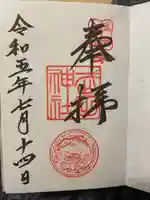 奉拝
令和五年七月十四日
神社